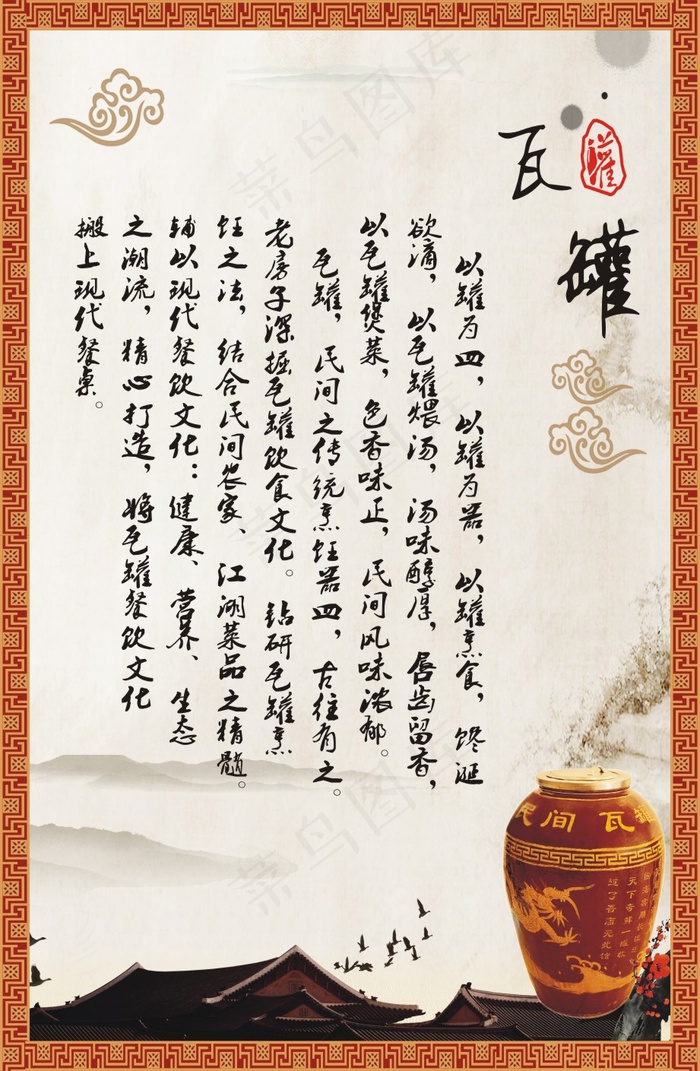 瓦
罐
罐
以罐为皿，以罐为器，以罐烹食，馋涎
欲滴，以瓦罐煨汤，汤味醇厚，唇齿留香，
以瓦罐煲菜，色香味正，民间风味浓郁。
瓦罐，民间之传统烹饪器皿，古往有之。
老房子深掘瓦罐饮食文化。钻研瓦罐烹
饪之法，结合民间农家、江湖菜品之精髓。
辅以现代餐饮文化：健康、营养、生态
之潮流，精心打造，将瓦罐餐饮文化
搬上现代餐桌。
民间瓦罐
天下奇鲜一罐
菜鸟图库
菜鸟图库
菜鸟图库